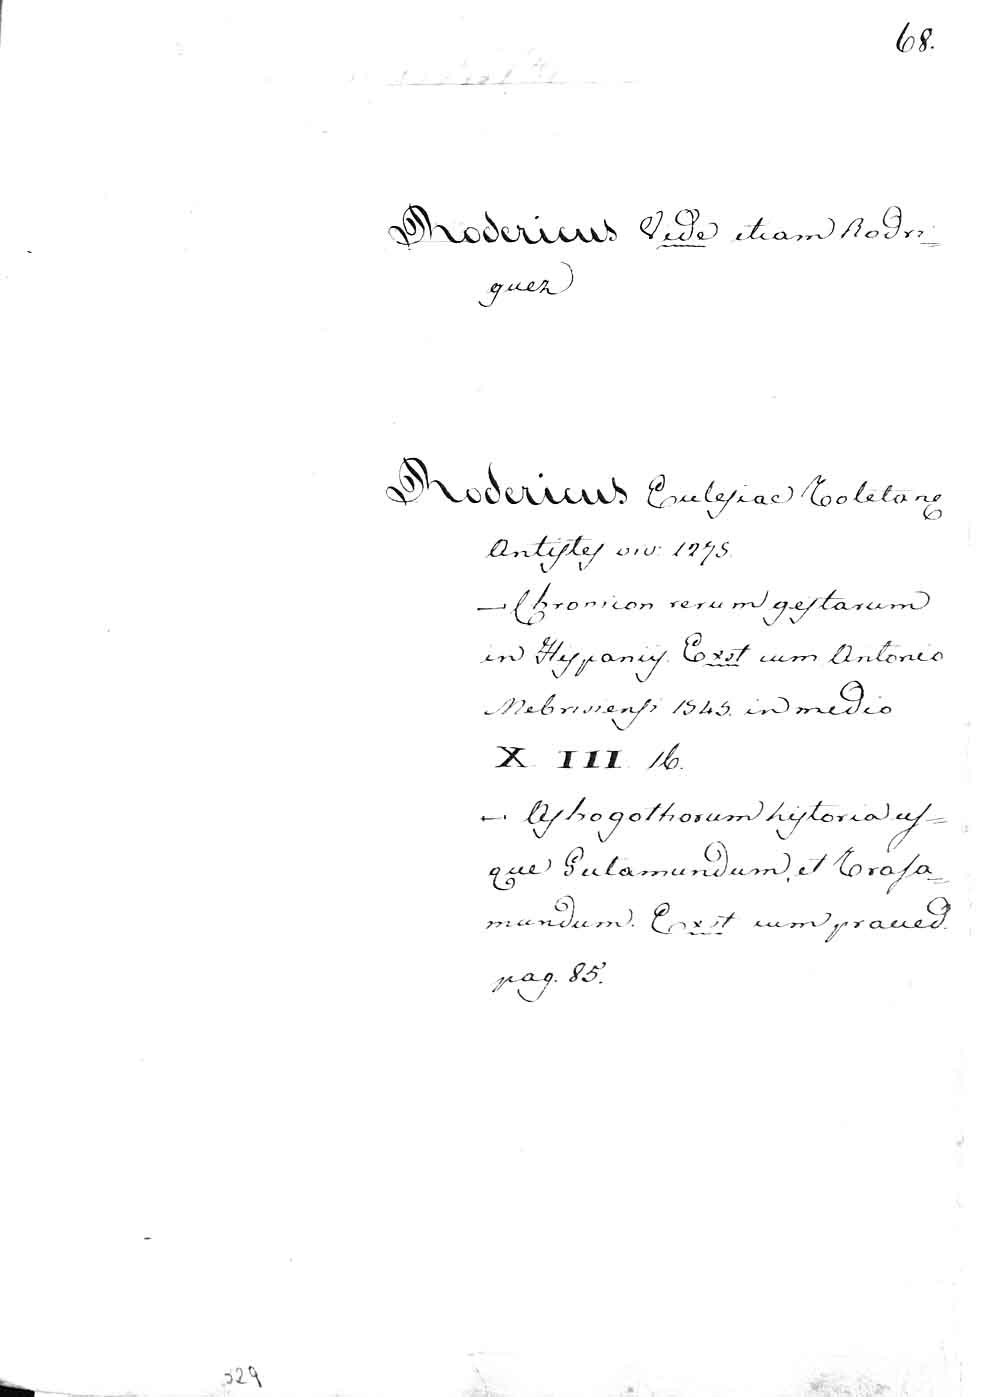 68.
Rodericus Vide etiam Rodri=
guez
Rodericus Eulesiae Toletanę
Antistes viv: 1275.
— Chronicon rerum gestarum
in Hispaniis. Exst cum Antonio
Nebrissensi 1545. in medio
X III 16.
— gothorum historia us=
que et Trasa=
mundum. Exst cum praeced.
pag. 85.
529